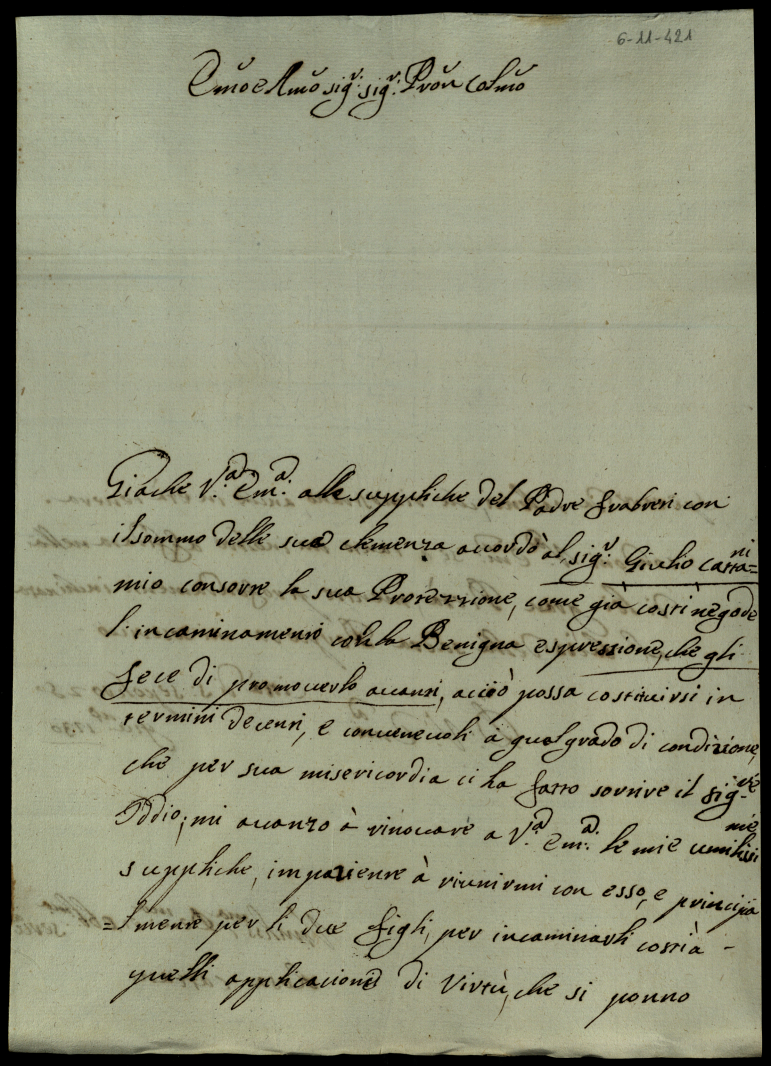 6-11-421
Em̃o e Rm̃o sigr: sigr: Pron̄ Colm̃o
Giache V.a Em.a alle suppliche del Padre Frabveri con
il sommo delle sua clemenza accordò al sigr. Giulio Cassani
mio consorte la sua Protettione, come già costì ne gode
l'incaminamento colla Benigna espressione, che gli
fece di promoverlo avanti, acciò possa costituirsi in
termini decenti, e convenevoli à qual grado di condizione,
che per sua misericordia ci ha fatto sortire il sigre
Iddio; mi avanzo à rinovare a V.a Em.a le mie umilissime
suppliche, impaziente à riunirmi con esso, e principa
=lmente per li due figli, per incaminarli costì à -
quelli applicacioned di Virtù, che si ponno